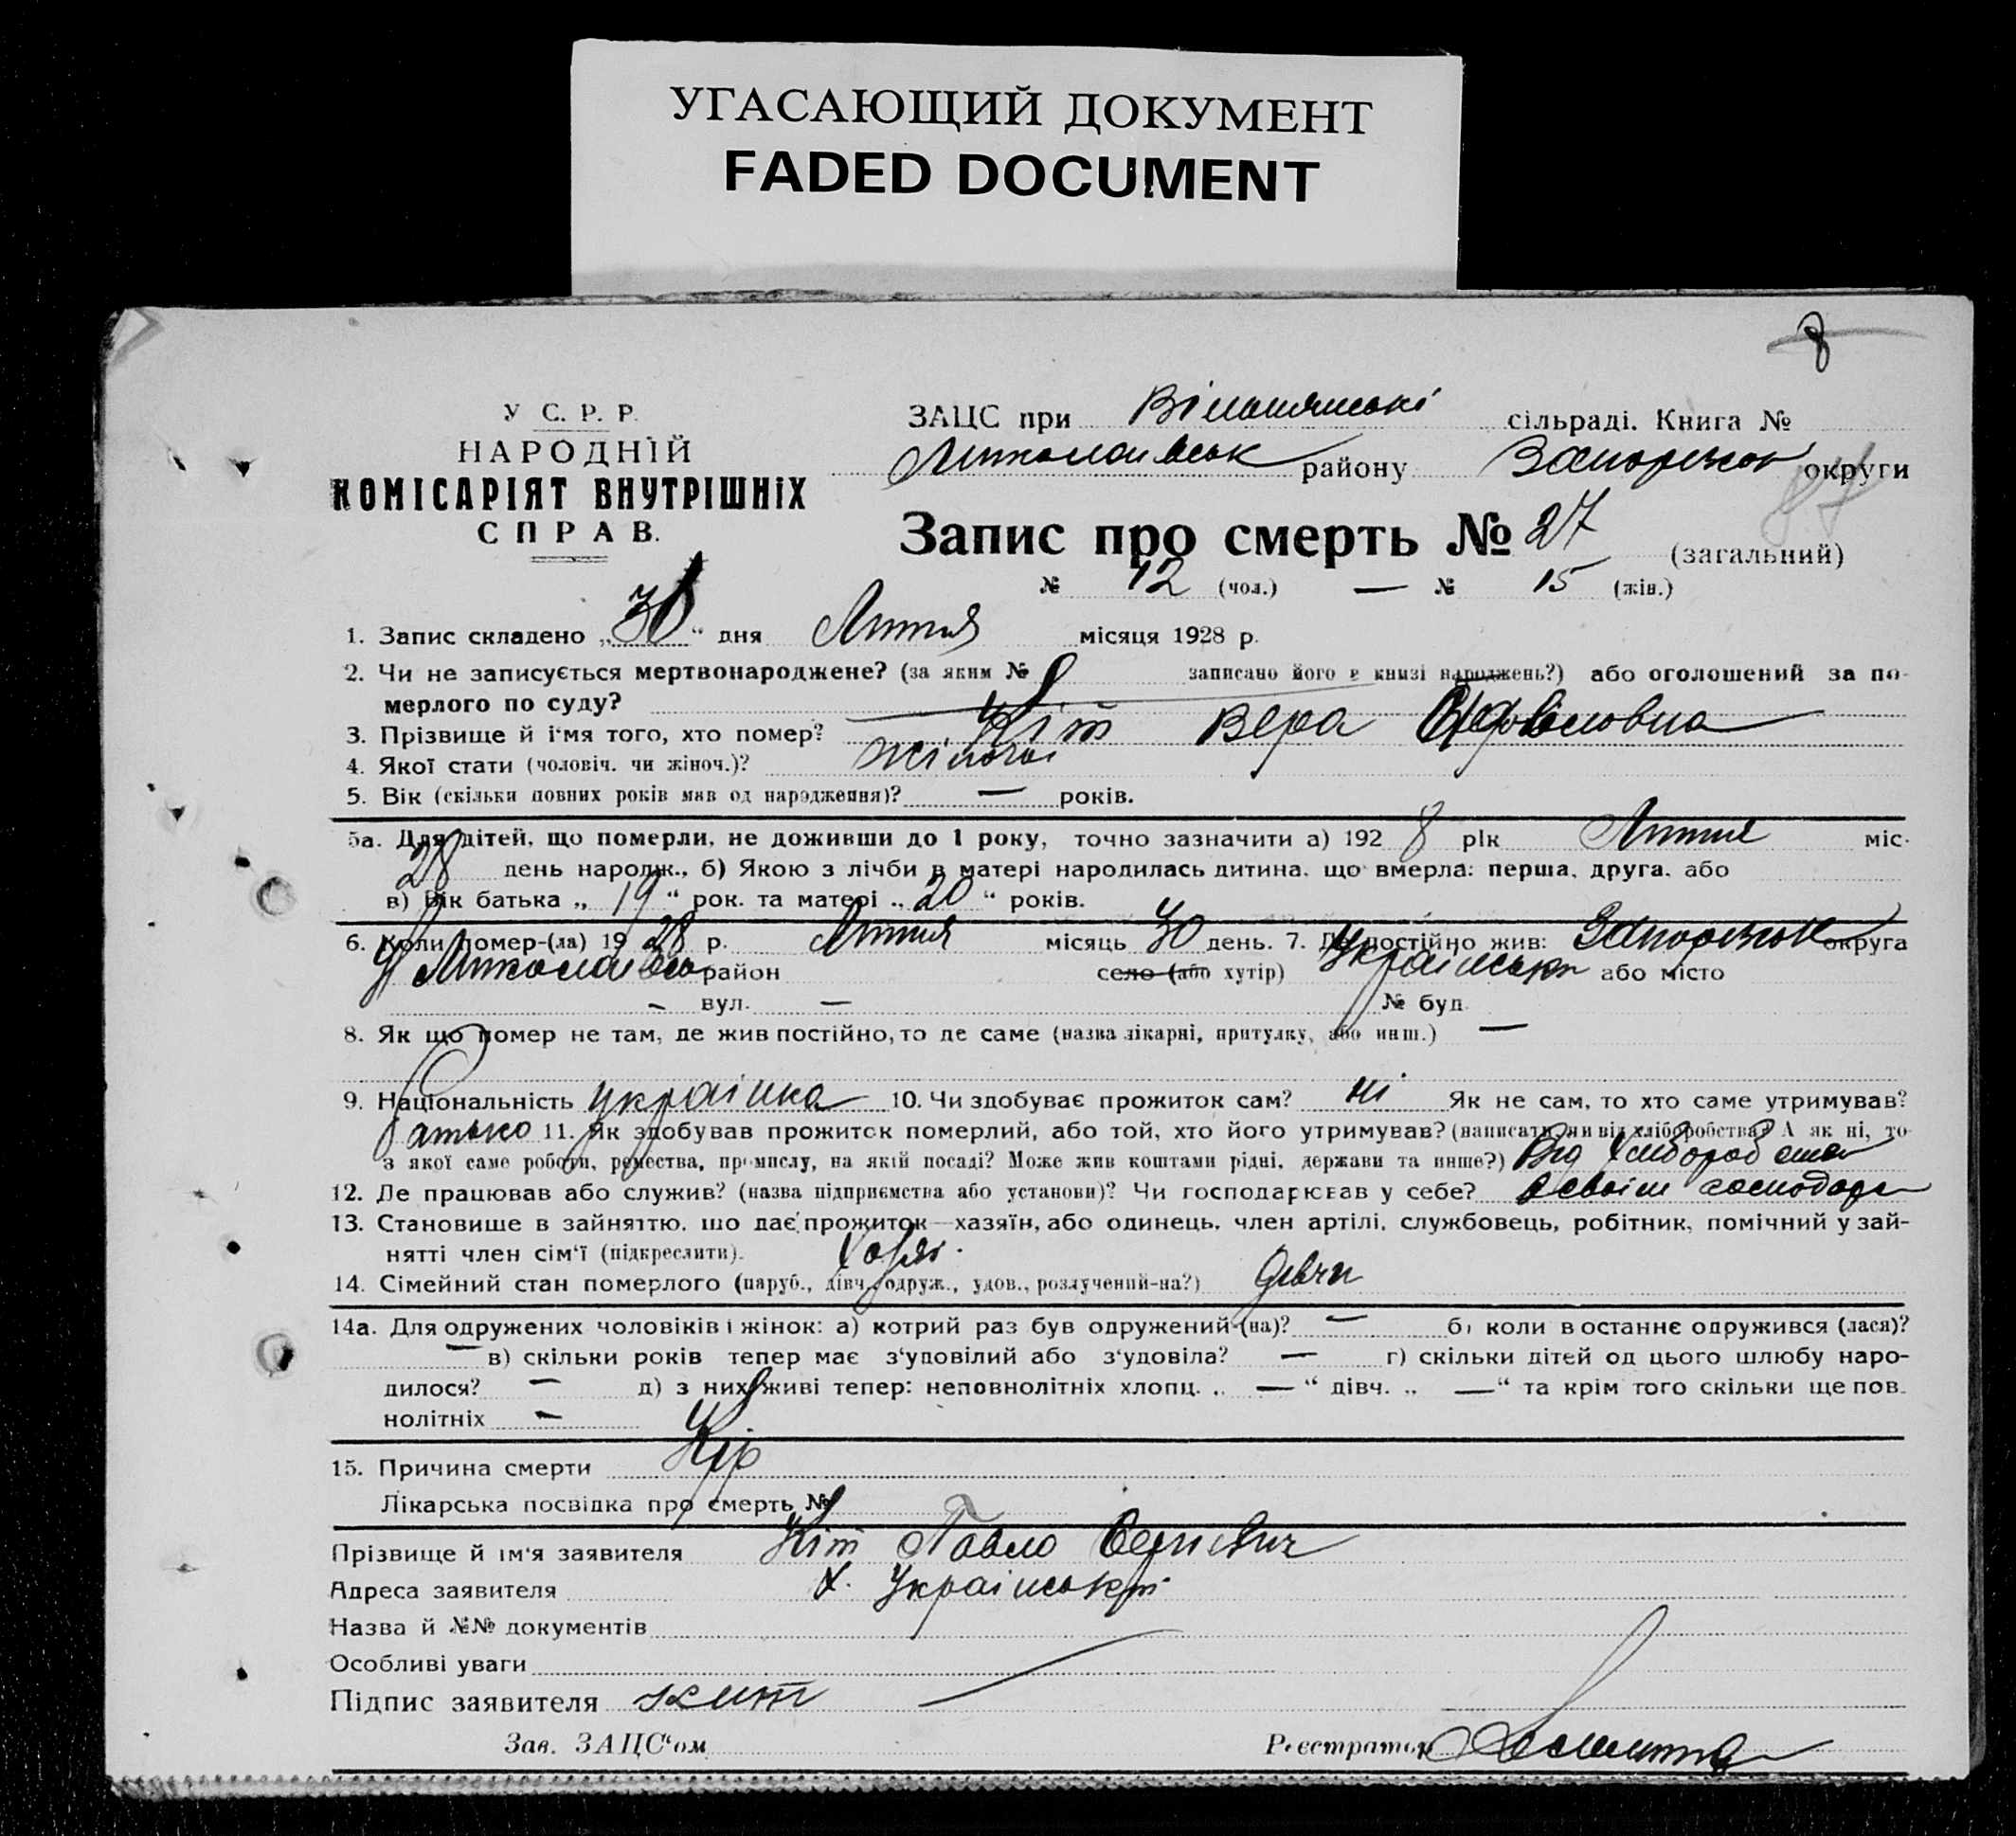 УГАСАЮЩИЙ ДОКУМЕНТ
FADED DOCUMENT
8
У С. Р. Р.
НАРОДНІЙ
КОМІСАРІЯТ ВНУТРІШНІХ
СПРАВ.
ЗАЦС при сільраді. Книга №
району округи
Запис про смерть № 27 (загальний)
№ 12 (чол.) — № 15 (жін.)
1. Запис складено „30“ дня Липня місяця 1928 р.
2. Чи не записується мертвонароджене? (за яким № записано його в книзі народжень?) або оголошений за по-
мерлого по суду?
3. Прізвище й ім'я того, хто помер? Кіт Вера
4. Якої стати (чоловіч. чи жіноч.)? жіноча
5. Вік (скільки повних років мав од народження)? — років.
5а. Для дітей, що померли, не доживши до 1 року, точно зазначити а) 1928 рік Липня міс.
28 день народж., б) Якою з лічби в матері народилась дитина, що вмерла: перша, друга, або
в) Вік батька „19“ рок. та матері „20“ років.
6. Коли помер-(ла) 1928 р. Липня місяць 30 день. 7. Де постійно жив: округа
район село (або хутір) або місто
- вул. — № буд.
8. Як що помер не там, де жив постійно, то де саме (назва лікарні, притулку, або инш.) —
9. Національність українка 10. Чи здобуває прожиток сам? ні Як не сам, то хто саме утримував?
батько 11. Як здобував прожиток померлий, або той, хто його утримував? (написати, чи від хліборобства? А як ні, то
з якої саме роботи, ремества, промислу, на якій посаді? Може жив коштами рідні, держави та инше?) Від
12. Де працював або служив? (назва підприємства або установи)? Чи господарював у себе? в своїм
13. Становище в зайняттю, що дає прожиток—хазяїн, або одинець, член артілі, службовець, робітник, помічний у зай-
нятті член сім'ї (підкреслити).
14. Сімейний стан померлого (паруб., дівч., одруж., удов., розлучений-на?)
14а. Для одружених чоловіків і жінок: а) котрий раз був одружений-(на)? — б) коли в останнє одружився (лася)?
— в) скільки років тепер має з'удовілий або з'удовіла? — г) скільки дітей од цього шлюбу наро-
дилося? — д) з них живі тепер: неповнолітніх хлопц. „—“ дівч. „—“ та крім того скільки ще пов-
нолітніх —
15. Причина смерти Кір
Лікарська посвідка про смерть №
Прізвище й ім'я заявителя Кіт Павло
Адреса заявителя х.
Назва й №№ документів
Особливі уваги
Підпис заявителя Кит
Зав. ЗАЦС'ом Реєстратор